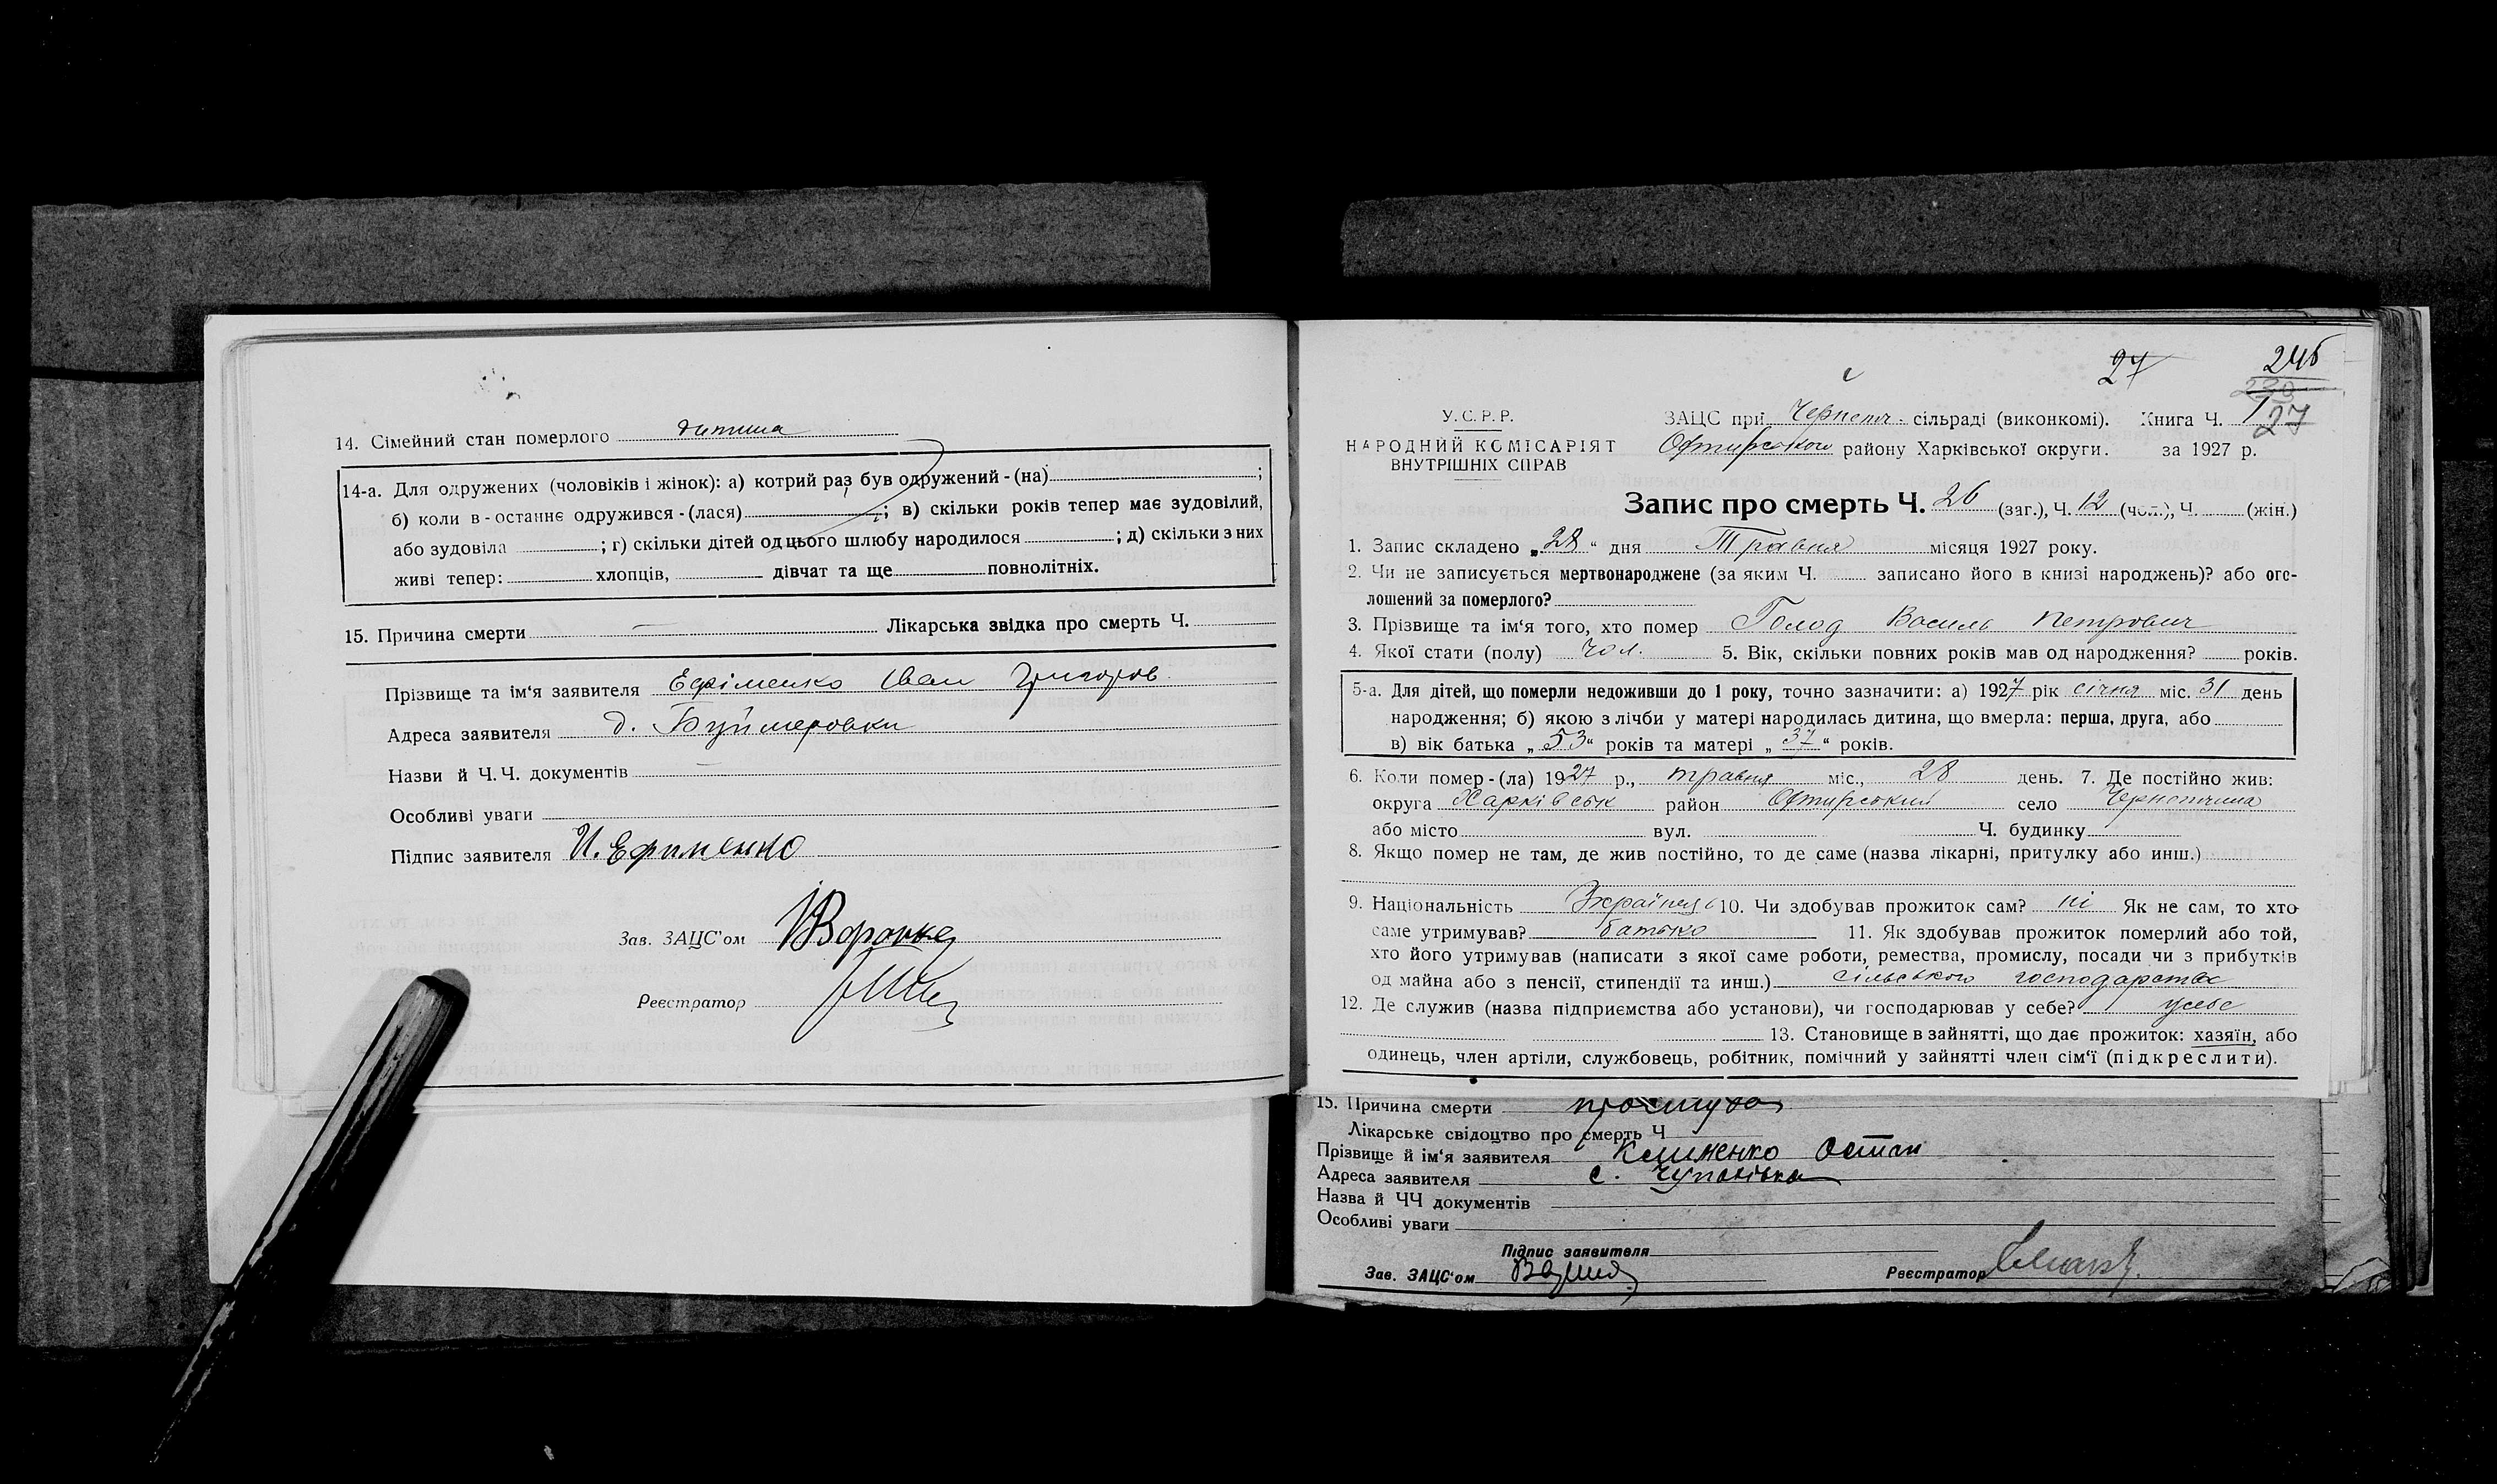 14. Сімейний стан померлого дитина
14-а. Для одружених (чоловіків і жінок): а) котрий раз був одружений - (на) ;
б) коли в - останнє одружився - (лася) ; в) скільки років тепер має зудовілий,
або зудовіла ; г) скільки дітей од цього шлюбу народилося ; д) скільки з них
живі тепер: хлопців, дівчат та ще повнолітніх.
15. Причина смерти — Лікарська звідка про смерть Ч.
Прізвище та ім'я заявителя Ефіменко Іван Григоров.
Адреса заявителя д. Буймеровки
Назви й Ч. Ч. документів —
Особливі уваги
Підпис заявителя И. Ефименко
Зав. ЗАЦС'ом
Реєстратор
27 246
230
У. С. Р. Р. ЗАЦС при Чернетч. сільраді (виконкомі). Книга Ч. 1
27
НАРОДНИЙ КОМІСАРІЯТ Охтирського району Харківської округи. за 1927 р.
ВНУТРІШНІХ СПРАВ
Запис про смерть Ч. 26 (заг.), Ч. 12 (чол.), Ч. (жін.)
1. Запис складено „28“ дня Травня місяця 1927 року.
2. Чи не записується мертвонароджене (за яким Ч. записано його в книзі народжень)? або ого-
лошений за померлого?
3. Прізвище та ім'я того, хто помер Голод Василь Петрович
4. Якої стати (полу) чол. 5. Вік, скільки повних років мав од народження? років.
5-а. Для дітей, що померли недоживши до 1 року, точно зазначити: а) 1927 рік січня міс. 31 день
народження; б) якою з лічби у матері народилась дитина, що вмерла: перша, друга, або
в) вік батька „53“ років та матері „37“ років.
6. Коли помер - (ла) 1927 р., травня міс., 28 день. 7. Де постійно жив:
округа Харківськ район Охтирський село Чернетчина
або місто вул. Ч. будинку
8. Якщо помер не там, де жив постійно, то де саме (назва лікарні, притулку або инш.)
9. Національність Українець 10. Чи здобував прожиток сам? ні Як не сам, то хто
саме утримував? батько 11. Як здобував прожиток померлий або той,
хто його утримував (написати з якої саме роботи, ремества, промислу, посади чи з прибутків
од майна або з пенсії, стипендії та инш.) сільського господарства
12. Де служив (назва підприємства або установи), чи господарював у себе? у себе
13. Становище в зайнятті, що дає прожиток: хазяїн, або
одинець, член артіли, службовець, робітник, помічний у зайнятті член сім'ї (підкреслити).
15. Причина смерти простуда
Лікарське свідоцтво про смерть Ч
Прізвище й ім'я заявителя Клименко Остап
Адреса заявителя с. Чупахівка
Назва й ЧЧ документів
Особливі уваги
Підпис заявителя
Зав. ЗАЦС'ом Реєстратор